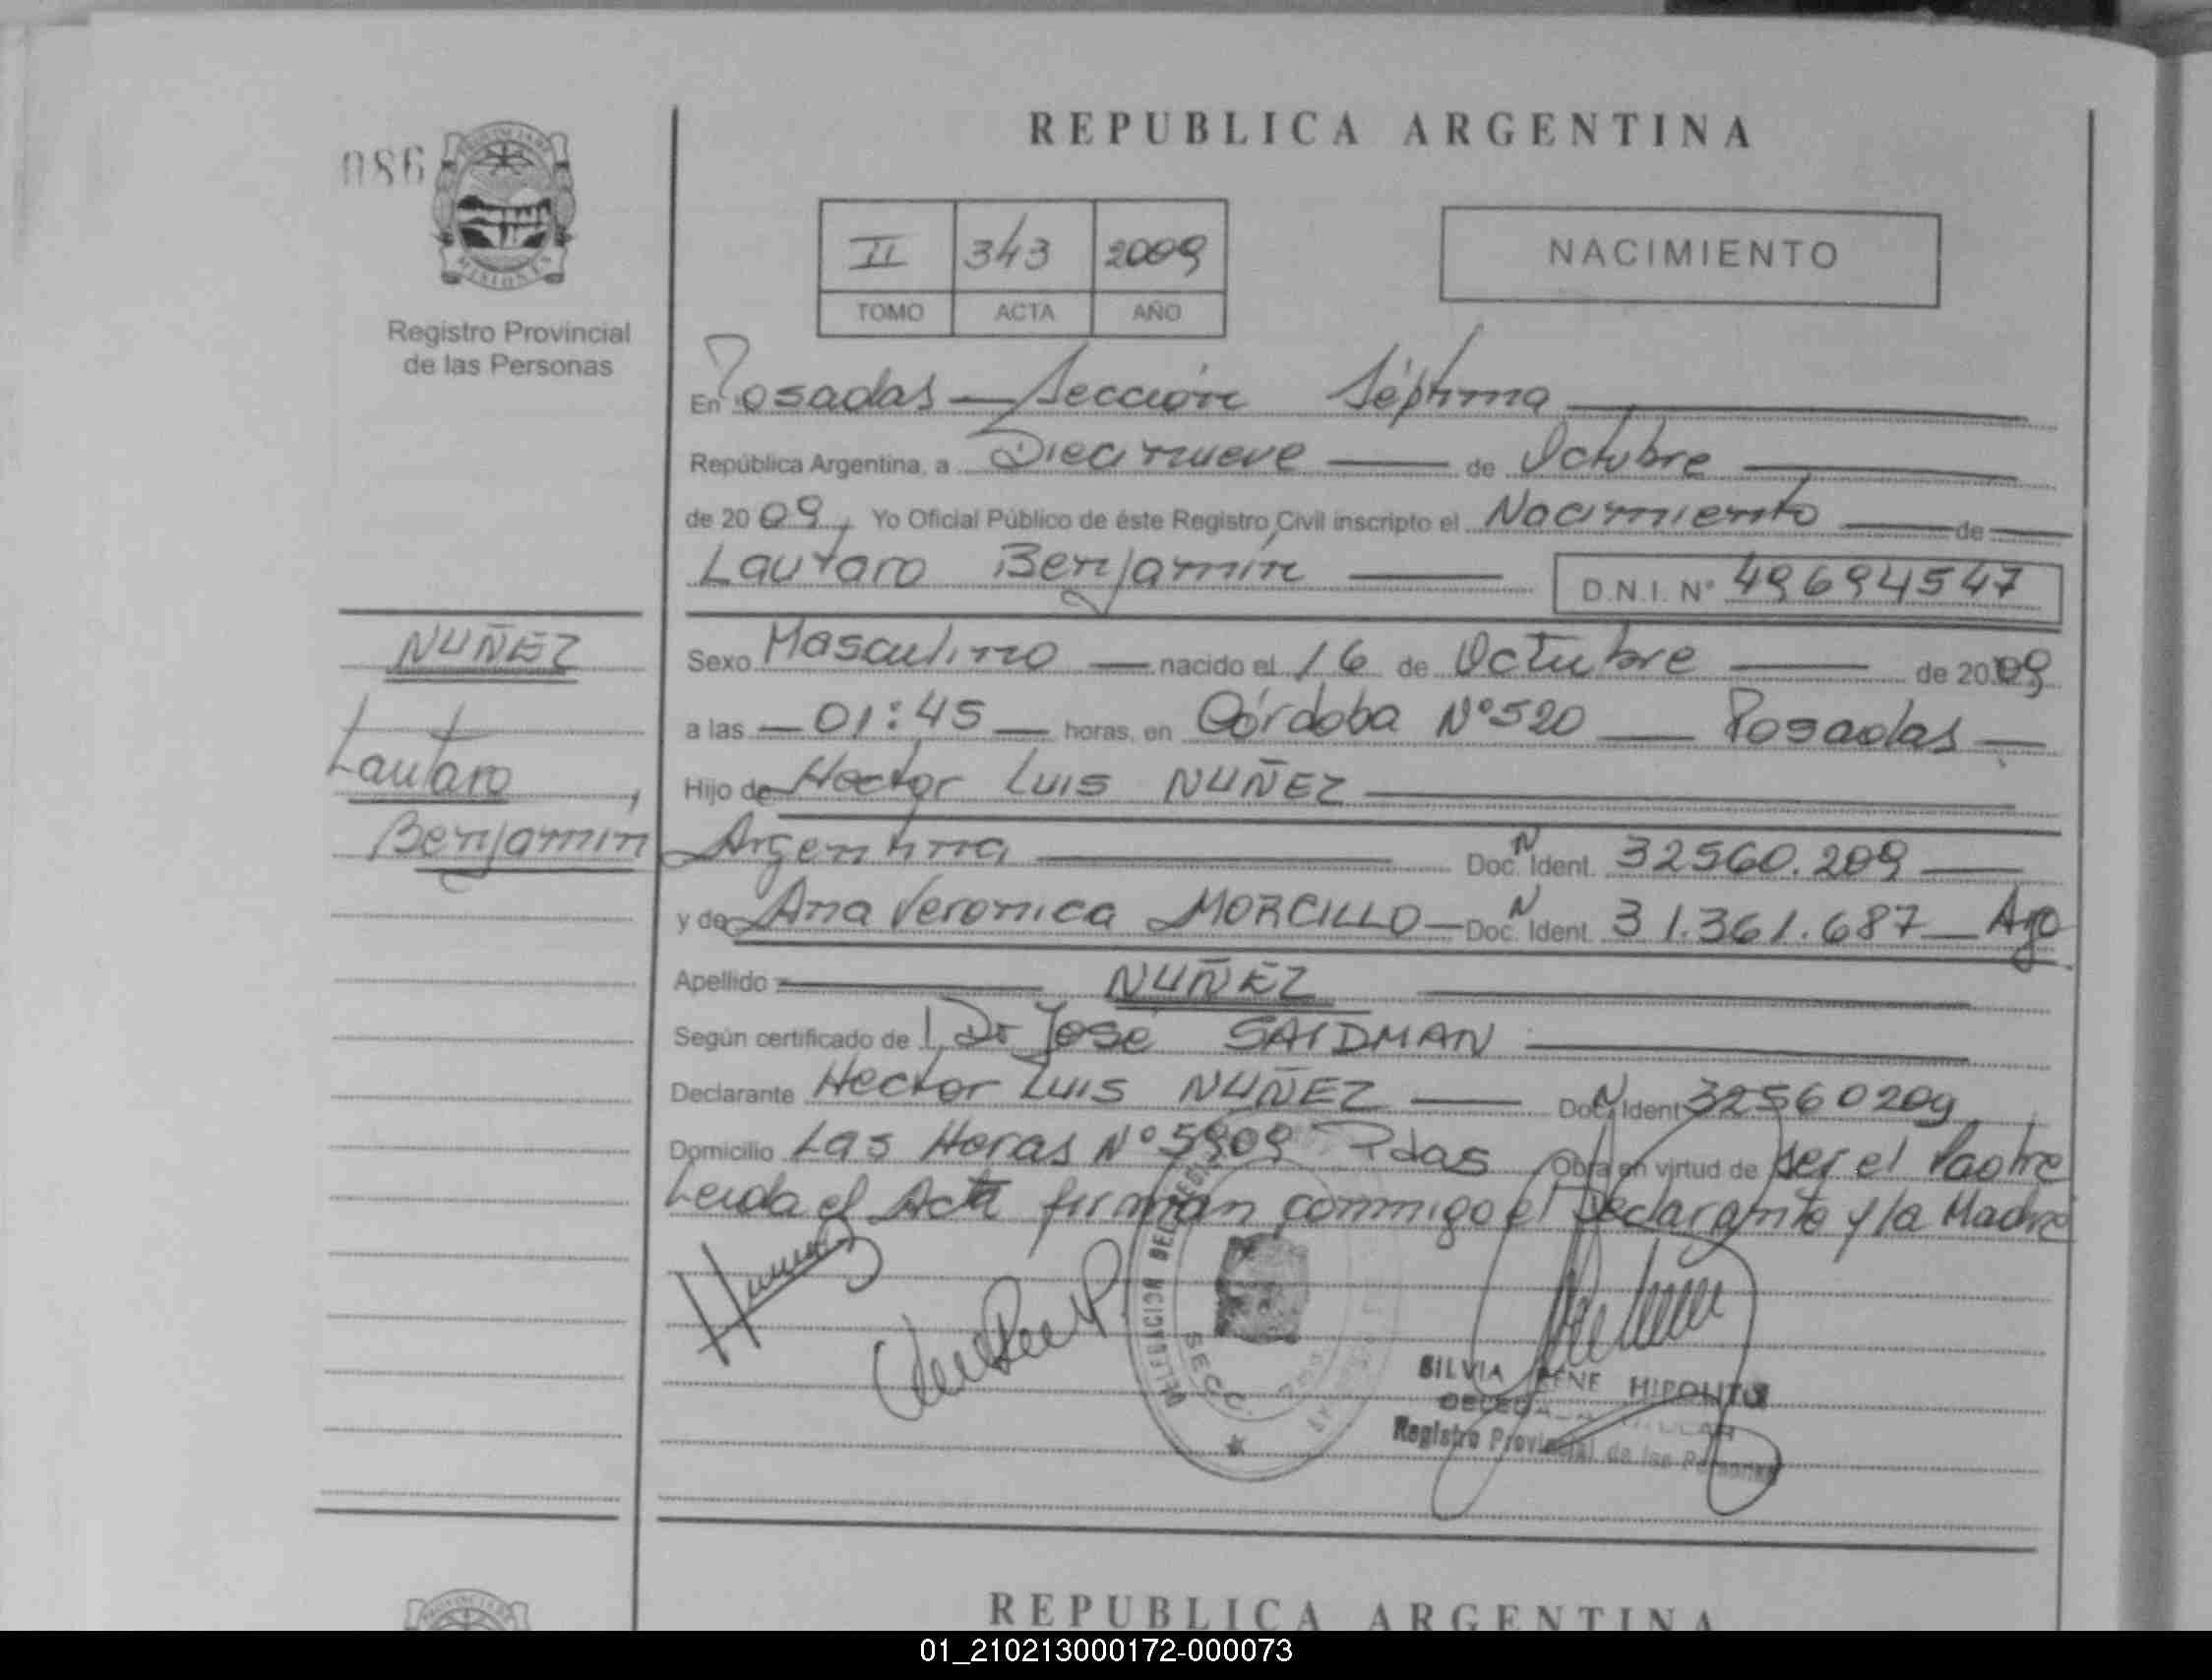 REPUBLICA ARGENTINA
086
PROVINCIA DE
MISIONES
II 343 2009
TOMO ACTA AÑO
NACIMIENTO
Registro Provincial
de las Personas
En Posadas — Sección Séptima
República Argentina, a Diecinueve de Octubre
de 2009, Yo Oficial Público de éste Registro Civil inscripto el Nacimiento de
Lautaro Benjamín D.N.I. Nº 49694547
NUÑEZ
Lautaro,
Benjamín
Sexo Masculino nacido el 16 de Octubre de 2009
a las 01:45 horas, en Córdoba Nº 520 Posadas
Hijo de Hector Luis NUÑEZ
Argentina Doc. N Ident. 32560.209
y de Ana Veronica MORCILLO Doc. N Ident. 31.361.687 Arg
Apellido NUÑEZ
Según certificado de Dr José SAIDMAN
Declarante Hector Luis NUÑEZ Doc. N Ident 32560209
Domicilio Las Heras Nº 5909 Pdas Obra en virtud de ser el Padre
Leida el Acta firman conmigo el Declarante y la Madre
DELEGACION
SECC.
SILVIA HIPOLITO
Registro Provincial de las Personas
REPUBLICA ARGENTINA
01_210213000172-000073